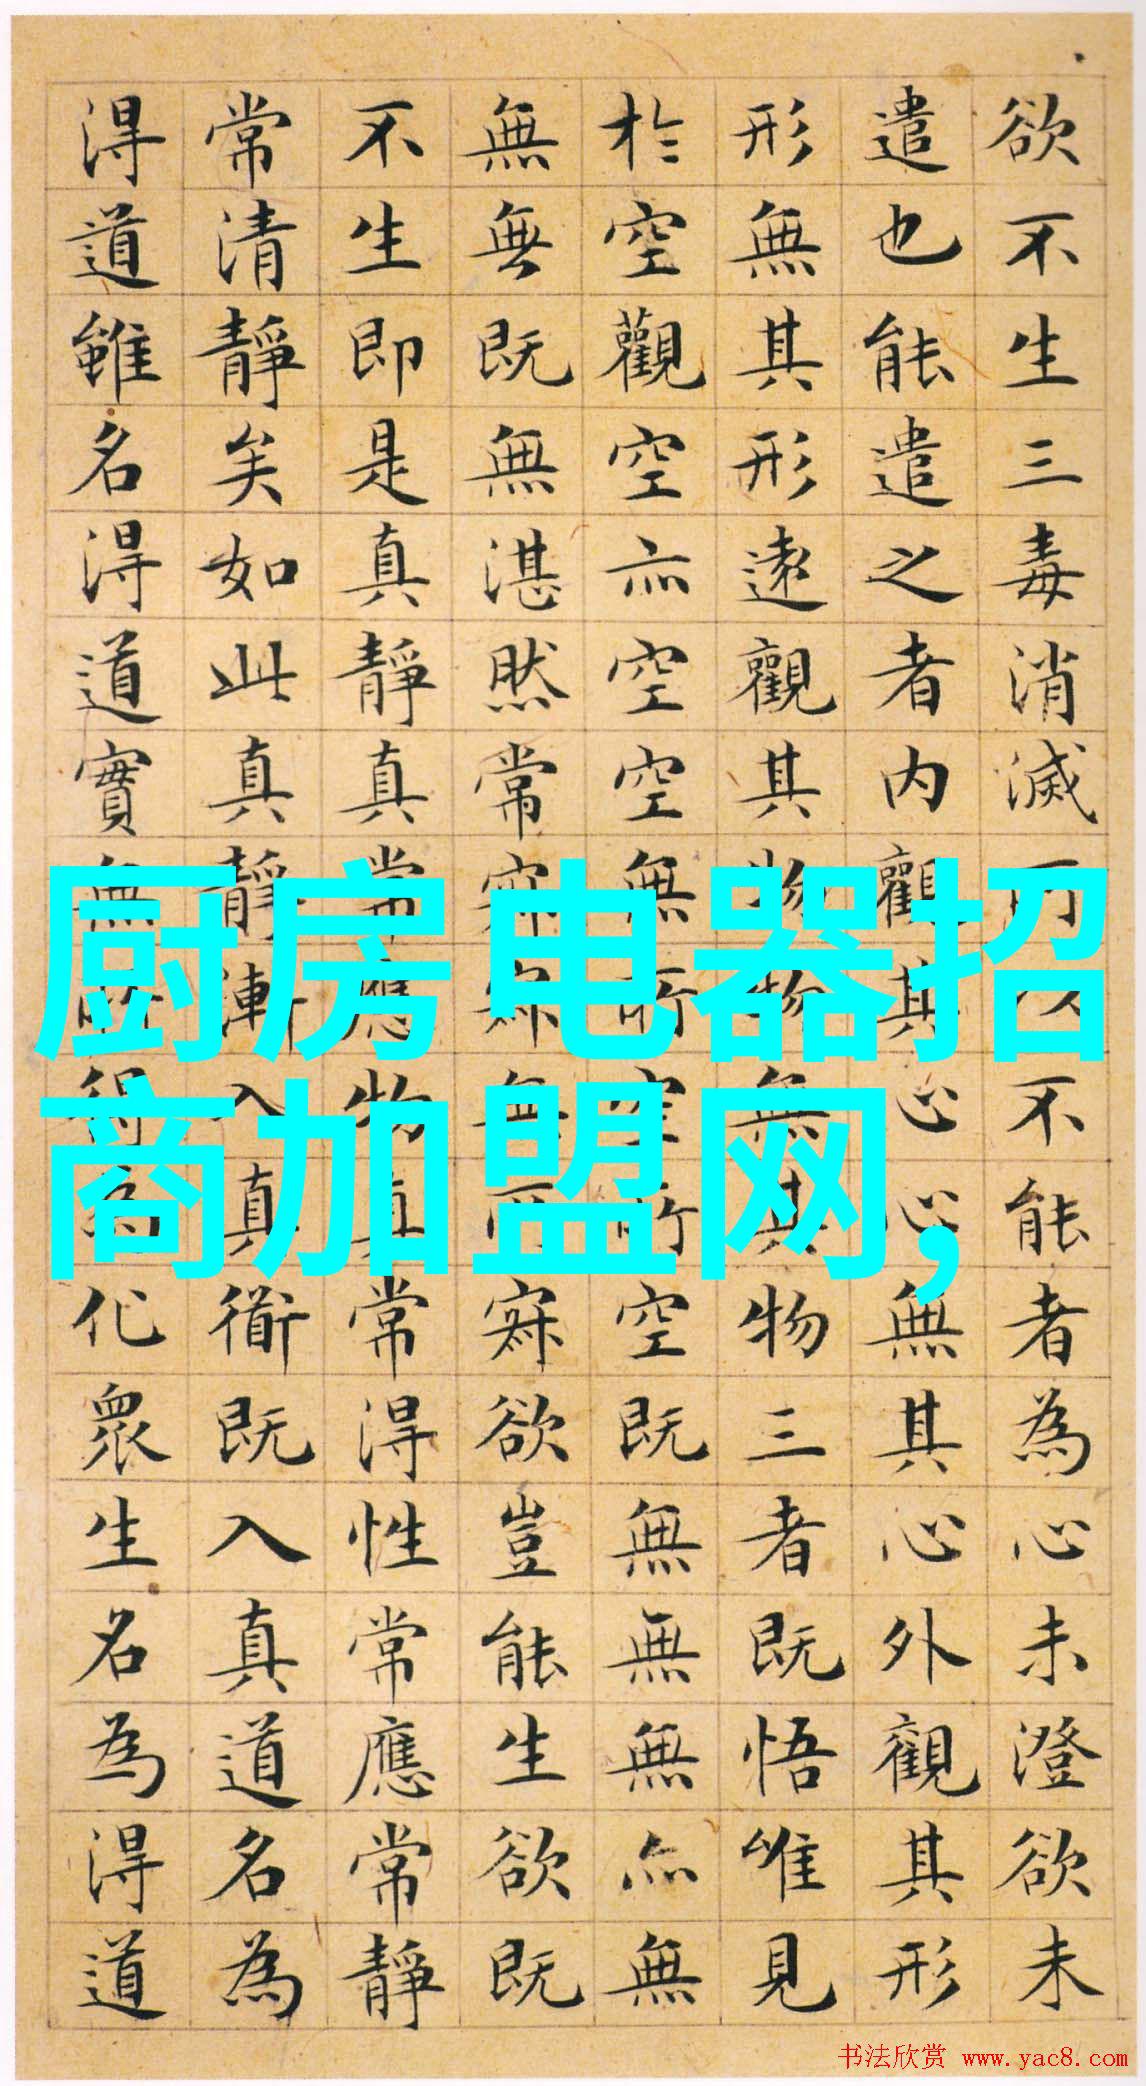 欲不生三毒消滅不能者為心未澄欲未
遣也能遣之者内觀其心心無其心外觀其形
形無其形遠觀其物物無其物三者既悟唯見
於空觀空亦空空無所空所空既無無無亦無
無無既無湛然常寂寂無所寂欲豈能生欲既
不生即是真靜真常應物真常得性常應常靜
常清靜矣如此真靜漸入真衜既入真道名為
得道雖名得道實無所得為化眾生名為得道
厨房电器招
商加盟网，
书法欣赏 www.yac8.com